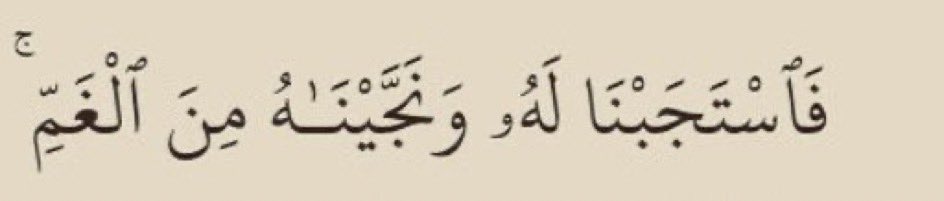 فَٱسْتَجَبْنَا لَهُۥ وَنَجَّيْنَـٰهُ مِنَ ٱلْغَمِّ ۚ